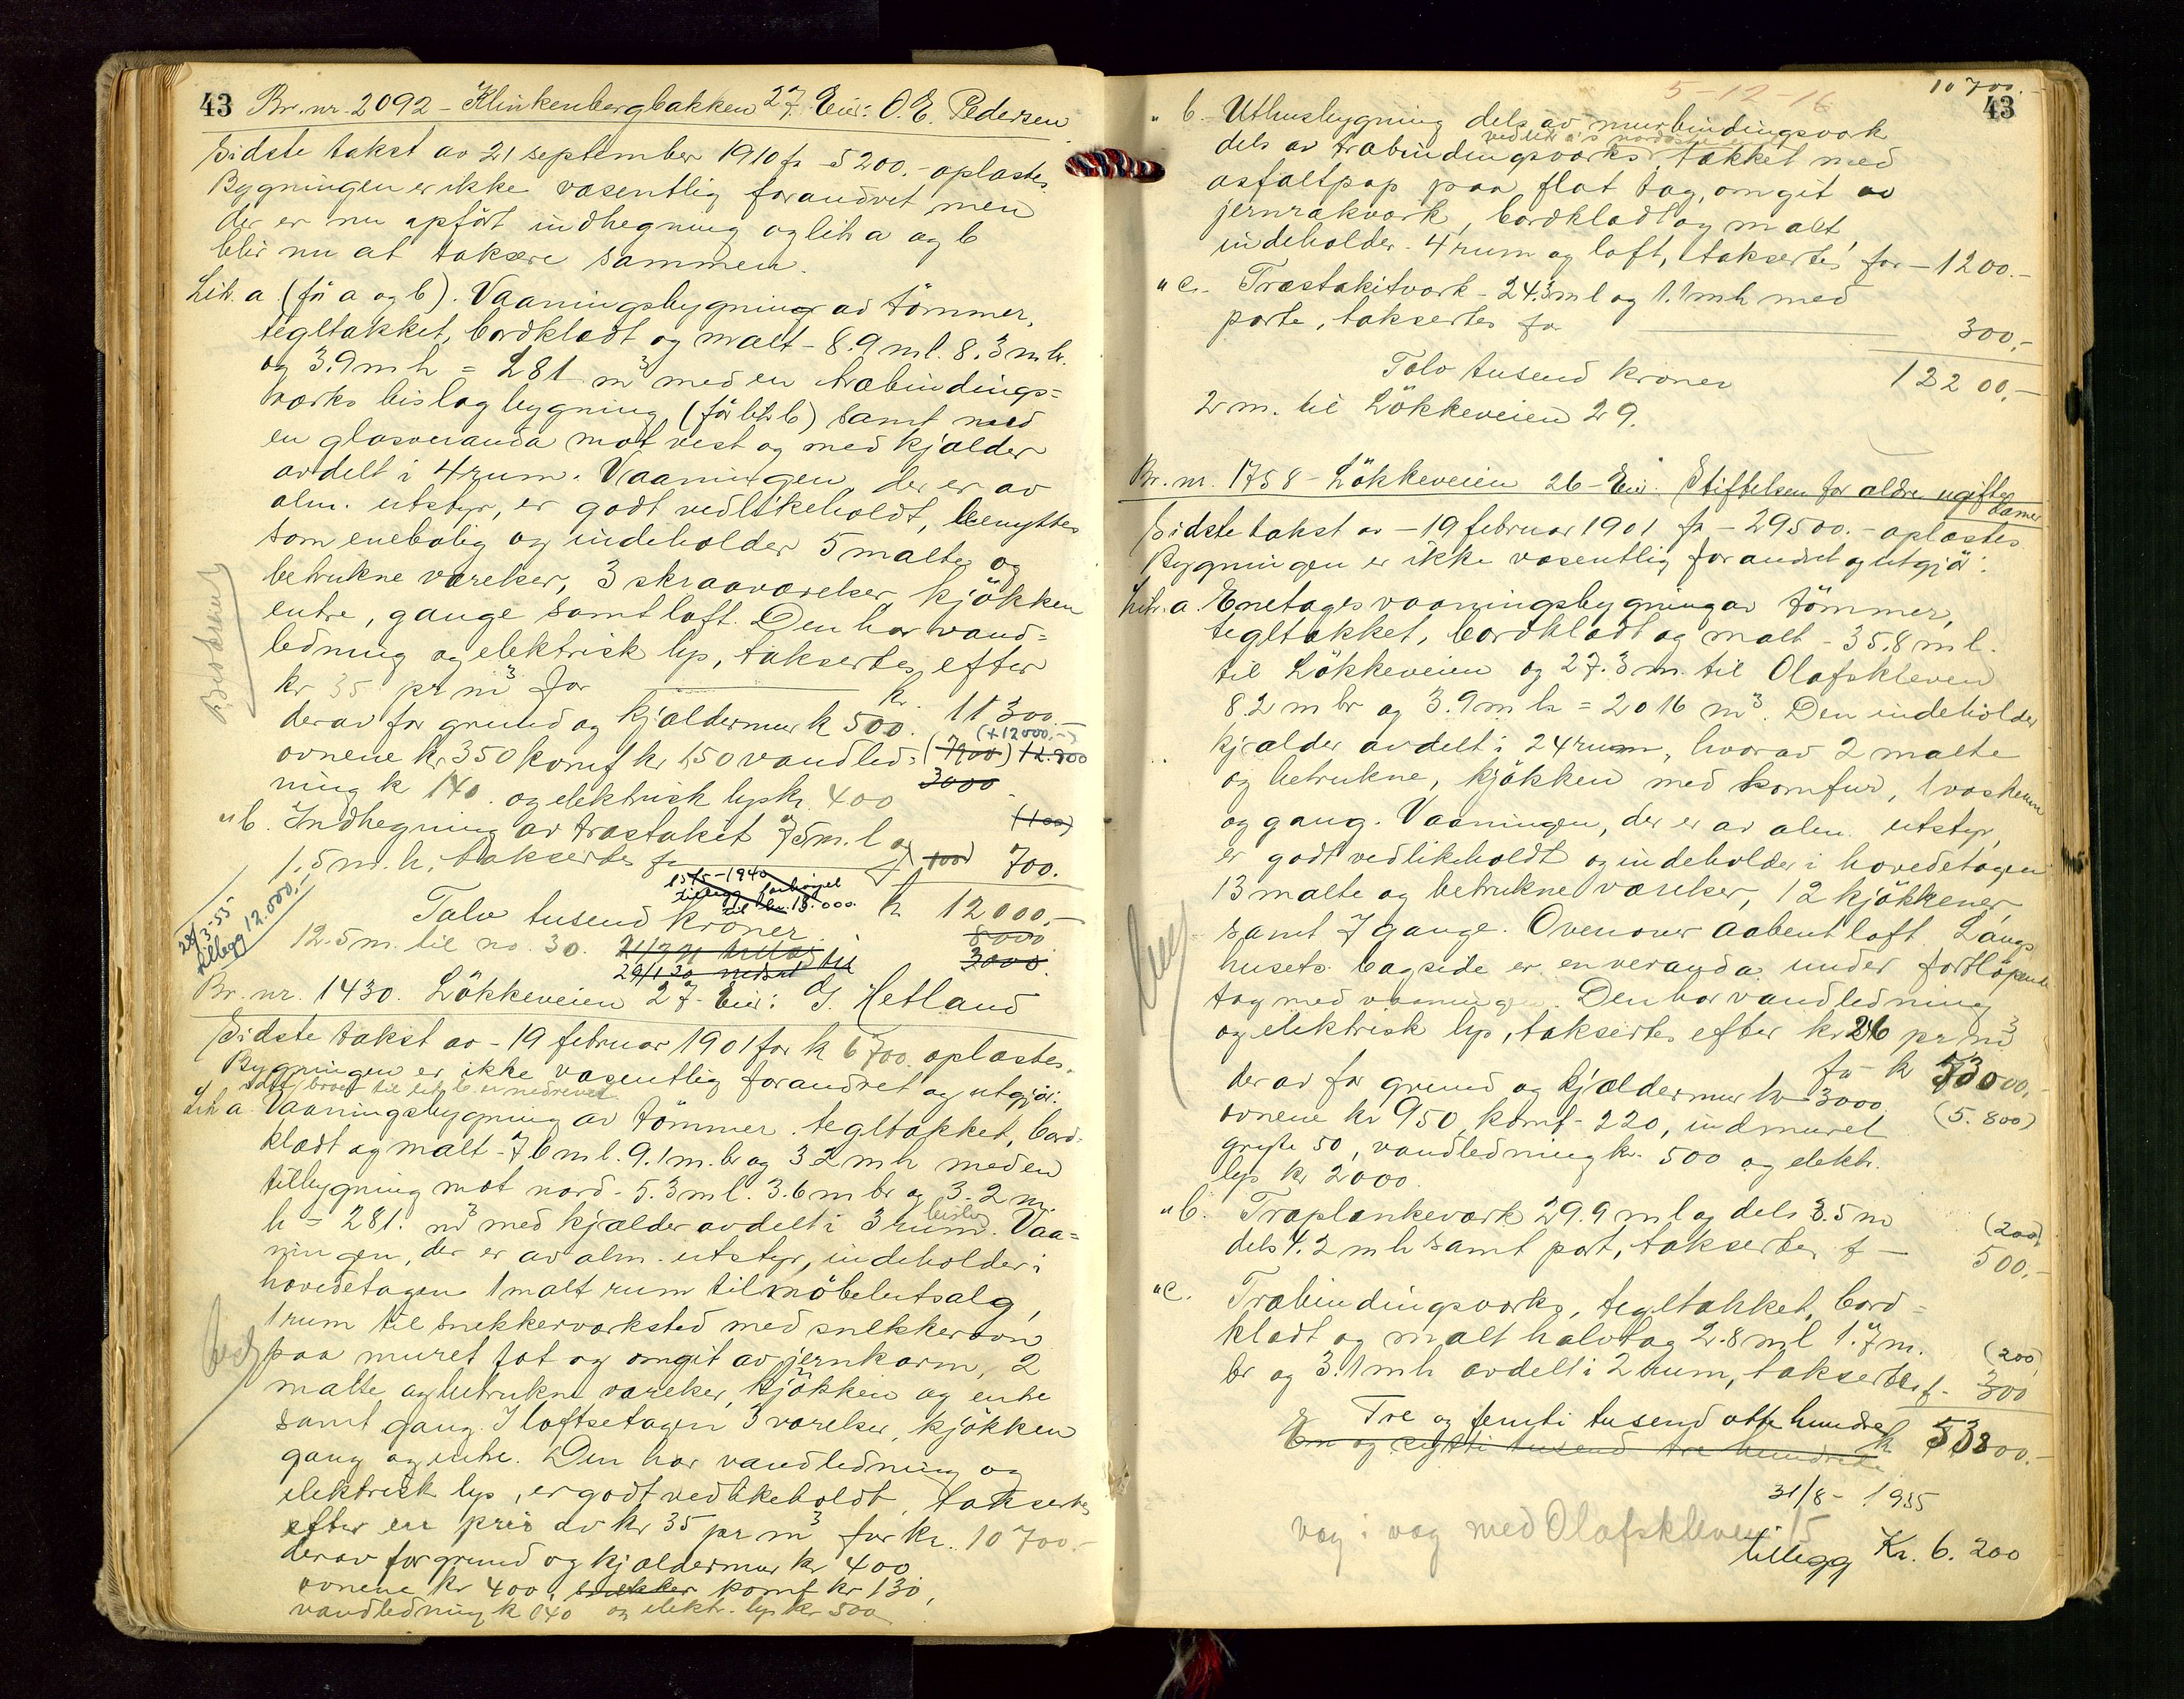 43 Br. nr. 2092 - Klinkenbergbakken 27. Eier: O. E. Pedersen
Sidste takst av 21 september 1910 fr 5200.- oplæstes.
Bygningen er ikke væsentlig forandret men
der er nu opført indhegning og litr a og b
blir nu at taksere sammen.
Litr. a (før a og b). Vaaningsbygning av tømmer,
tegltækket, bordklædt og malt - 8.9 m l. 8.3 m br.
og 3.9 m h = 281 m³ med en træbindings=
værks bislagbygning, (før litr b) samt med
en glasveranda mot vest og med kjælder
avdelt i 4 rum. Vaaningen, der er av
alm. utstyr, er godt vedlikeholdt, benyttes
som enebolig og indeholder 5 malte og
betrukne værelser, 3 skraaværelser, kjøkken
entre, gange samt loft. Den har vand=
ledning og elektrisk lys, taksertes efter
kr 35 pr m³ for kr. 11300.-
derav for grund og kjældermur k 500. (+12000,-)
ovnene kr 350 komf kr 150 vandled= (7900) 12.800
ning k 140. og elektrisk lys kr. 400 3000
" b. Indhegning av træstakit 75 m. l og (100)
1.5 m. h. taksertes fr 100 700.
15/5-1940
tillegg forhøiel
til kr. 15.000.
28/3-55
tillegg 12.000,-
Tolv tusend kroner k 12000,-
8000
12.5 m. til no. 30. til 3000.
29/1 20 nedsat
Br. nr. 1430. Løkkeveien 27- Eier: G. Hetland
Sidste takst av - 19 februar 1901 for k 6700. oplæstes.
Bygningen er ikke væsentlig forandret og utgjør:
til litr b er nedrevet
Litr a. Vaaningsbygning av tømmer. tegltækket, bord=
klædt og malt - 7.6 m l. 9.1 m. br og 3.2 m h med en
tilbygning mot nord - 5.3 m l. 3.6 m br og 3.2 m
h = 281. m³ med kjælder avdelt i 3 rum. Vaa=
ningen, der er av alm. utstyr, indeholder i
hovedetagen 1 malt rum til møbelutsalg,
1 rum til snekkerværksted med snekkerovn
paa muret fot og omgit av jernkarm, 2
malte og betrukne værelser, kjøkken og entre
samt gang. I loftsetagen 3 værelser, kjøkken
gang og entre. Den har vandledning og
elektrisk lys, er godt vedlikeholdt, taksertes
efter en pris av kr 35 pr m³ for kr. 10700.-
derav for grund og kjældermur kr 400
ovnene kr 400, snekker komf kr 130,
vandledning k 140 og elektr. lys kr 500
5-12-16 10700.- 43
" b. Uthusbygning dels av murbindingsverk
dels av træbindingsværks, tækket med
asfaltpap paa flat tag, omgit av
jernrækverk, bordklædt og malt,
indeholder - 4 rum og loft, taksertes for - 1200.-
" c. Træstakitverk - 24.3 m l og 1.1 m h med
porte, taksertes for 300,-
Tolv tusend kroner 12200,-
2 m. til Løkkeveien 29.
Br. nr. 1758 - Løkkeveien 26 - Eier. Stiftelsen for ældre ugifte
damer
Sidste takst av - 19 februar 1901 fr - 29500.- oplæstes
Bygningen er ikke væsentlig forandret og utgjør:
Litr. a. Enetages vaaningsbygning av tømmer,
tegltækket, bordklædt og malt - 35.8 m l.
til Løkkeveien og 27.3 m. til Olafskleven
8.2 m br og 3.9 m h = 2016 m³. Den indeholder
kjælder avdelt i 24 rum, hvorav 2 malte
og betrukne, kjøkken med komfur, 1 vaskerum
og gang. Vaaningen, der er av alm. utstyr,
er godt vedlikeholdt og indeholder i hovedetagen
13 malte og betrukne værelser, 12 kjøkkener
samt 7 gange. Ovenover aabent loft. Langs
husets bagside er en veranda under fortløpende
tag med vaaningen. Den har vandledning
og elektrisk lys, taksertes efter kr 26 pr m³
for k 53000,-
derav for grund og kjældermur kr 3000 (5.800)
ovnene kr 950, komf - 220, indmuret
gryte 50, vandledning kr. 500 og elektr.
lys kr 2000.
" b. Træplankeverk 29.9 m l og dels 3.5 m (200)
dels 4.2 m h samt port, taksertes f - 500,-
" c. Træbindingsværks, tegltækket, bord=
klædt og malt halvtag 2.8 m l 1.7 m. (200)
br og 3.1 m h avdelt i 2 rum, taksertes f - 300
Tre og femti tusend otte hundre k 53800.-
En og sytti tusend tre hundrede
31/8- 1935
væg i væg med Olafskleven 15
tillegg Kr. 6.200